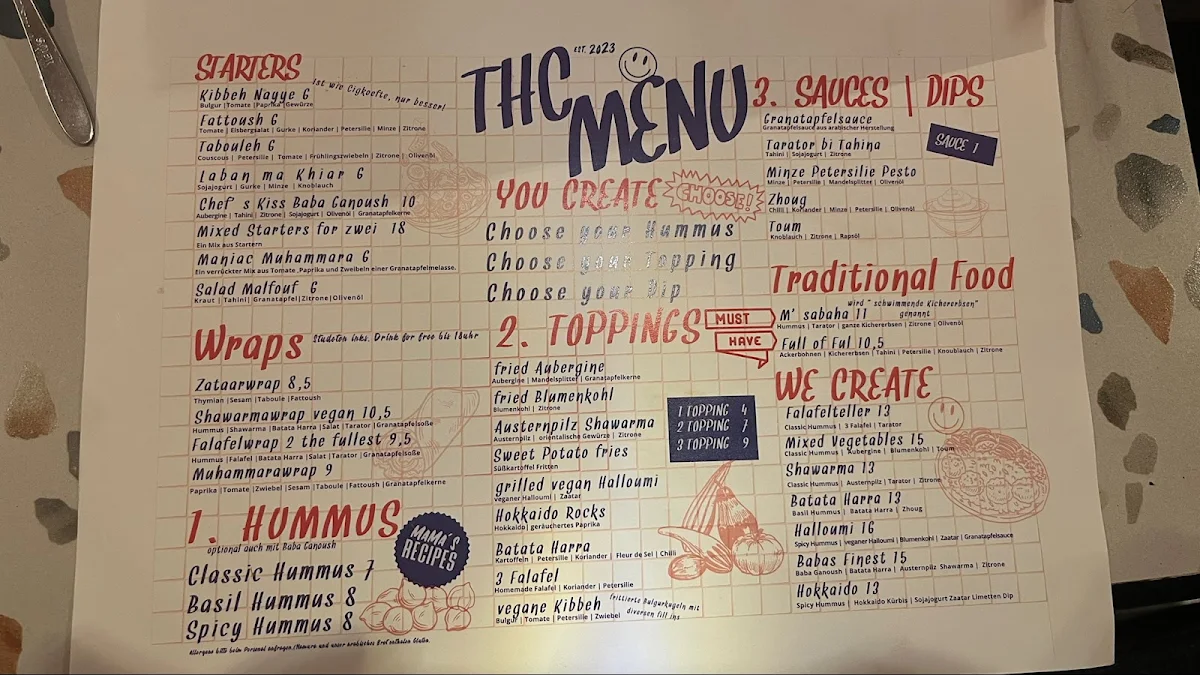 STARTERS
Ist wie Cigkoefte, nur besser!
Kibbeh Nayye 6
Bulgur | Tomate | Paprika | Gewürze
Fattoush 6
Tomate | Eisbergsalat | Gurke | Koriander | Petersilie | Minze | Zitrone
Tabouleh 6
Couscous | Petersilie | Tomate | Frühlingszwiebeln | Zitrone | Olivenöl
Laban ma Khiar 6
Sojajogurt | Gurke | Minze | Knoblauch
Chef's Kiss Baba Ganoush 10
Aubergine | Tahini | Zitrone | Sojajogurt | Olivenöl | Granatapfelkerne
Mixed Starters for zwei 18
Ein Mix aus Startern
Maniac Muhammara 6
Ein verrückter Mix aus Tomate, Paprika und Zweibeln einer Granatapfelmelasse.
Salad Malfouf 6
Kraut | Tahini | Granatapfel | Zitrone | Olivenöl
Wraps
Studeten inks. Drink for free bis 18uhr
Zataarwrap 8,5
Thymian | Sesam | Taboule | Fattoush
Shawarmawrap vegan 10,5
Hummus | Shawarma | Batata Harra | Salat | Tarator | Granatapfelsoße
Falafelwrap 2 the fullest 9,5
Hummus | Falafel | Batata Harra | Salat | Tarator | Granatapfelsoße
Muhammarawrap 9
Paprika | Tomate | Zwiebel | Sesam | Taboule | Fattoush | Granatapfelkerne
1. HUMMUS
optional auch mit Baba Ganoush
MAMA'S
RECIPES
Classic Hummus 7
Basil Hummus 8
Spicy Hummus 8
Allergene bitte beim Personal anfragen./Hamara und unser arabisches Brot enthalten Gluten.
EST. 2023
THC
MENU
YOU CREATE
CHOOSE!
Choose your Hummus
Choose your Topping
Choose your Dip
2. TOPPINGS
MUST
HAVE
fried Aubergine
Aubergine | Mandelsplitter | Granatapfelkerne
fried Blumenkohl
Blumenkohl | Zitrone
Austernpilz Shawarma
Austernpilz | orientalische Gewürze | Zitrone
Sweet Potato fries
Süßkartoffel Fritten
grilled vegan Halloumi
veganer Halloumi | Zaatar
Hokkaido Rocks
Hokkaido | geräuchertes Paprika
Batata Harra
Kartoffeln | Petersilie | Koriander | Fleur de Sel | Chilli
3 Falafel
Homemade Falafel | Koriander | Petersilie
vegane Kibbeh
Bulgur | Tomate | Petersilie | Zwiebel
frittierte Bulgurkugeln mit
diversen fill ins
1 TOPPING 4
2 TOPPING 7
3 TOPPING 9
3. SAUCES | DIPS
SAUCE 1
Granatapfelsauce
Granatapfelsauce aus arabischer Herstellung
Tarator bi Tahina
Tahini | Sojajogurt | Zitrone
Minze Petersilie Pesto
Minze | Petersilie | Mandelsplitter | Olivenöl
Zhoug
Chilli | Koriander | Minze | Petersilie | Olivenöl
Toum
Knoblauch | Zitrone | Rapsöl
Traditional Food
wird "schwimmende Kichererbsen"
genannt
M'sabaha 11
Hummus | Tarator | ganze Kichererbsen | Zitrone | Olivenöl
Full of Ful 10,5
Ackerbohnen | Kichererbsen | Tahini | Petersilie | Knoublauch | Zitrone
WE CREATE
Falafelteller 13
Classic Hummus | 3 Falafel | Tarator
Mixed Vegetables 15
Classic Hummus | Aubergine | Blumenkohl | Toum
Shawarma 13
Classic Hummus | Austernpilz | Tarator | Zitrone
Batata Harra 13
Basil Hummus | Batata Harra | Zhoug
Halloumi 16
Spicy Hummus | veganer Halloumi | Blumenkohl | Zaatar | Granatapfelsauce
Babas Finest 15
Baba Ganoush | Batata Harra | Austernpilz Shawarma | Zitrone
Hokkaido 13
Spicy Hummus | Hokkaido Kürbis | Sojajogurt Zaatar Limetten Dip